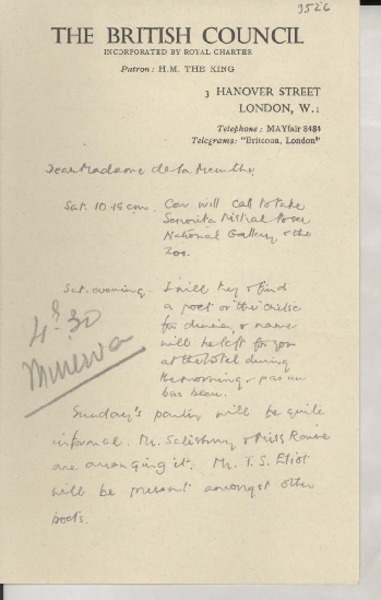 3526
THE BRITISH COUNCIL
INCORPORATED BY ROYAL CHARTER
Patron: H.M. THE KING
3 HANOVER STREET
LONDON, W.1
Telephone: MAYfair 8484
Telegrams: "Britcoun, London"
Dear Madame de la
Sat. 10.15 a.m. Car will call to take
Senorita Mistral to see
National Gallery & the
Zoo.
Sat. evening. I will try & find
a poet or literary critic
for dinner, & name
will be left for you
at the hotel during
the morning
4.30
Minerva
Sunday's party will be quite
informal. Mr. Salisbury & Miss Raine
are arranging it. Mr. T. S. Eliot
will be present amongst other
poets.